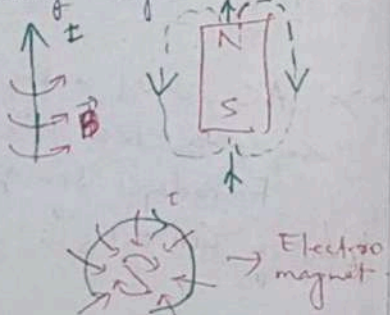 I
N
B
S
I
Electro
magnet